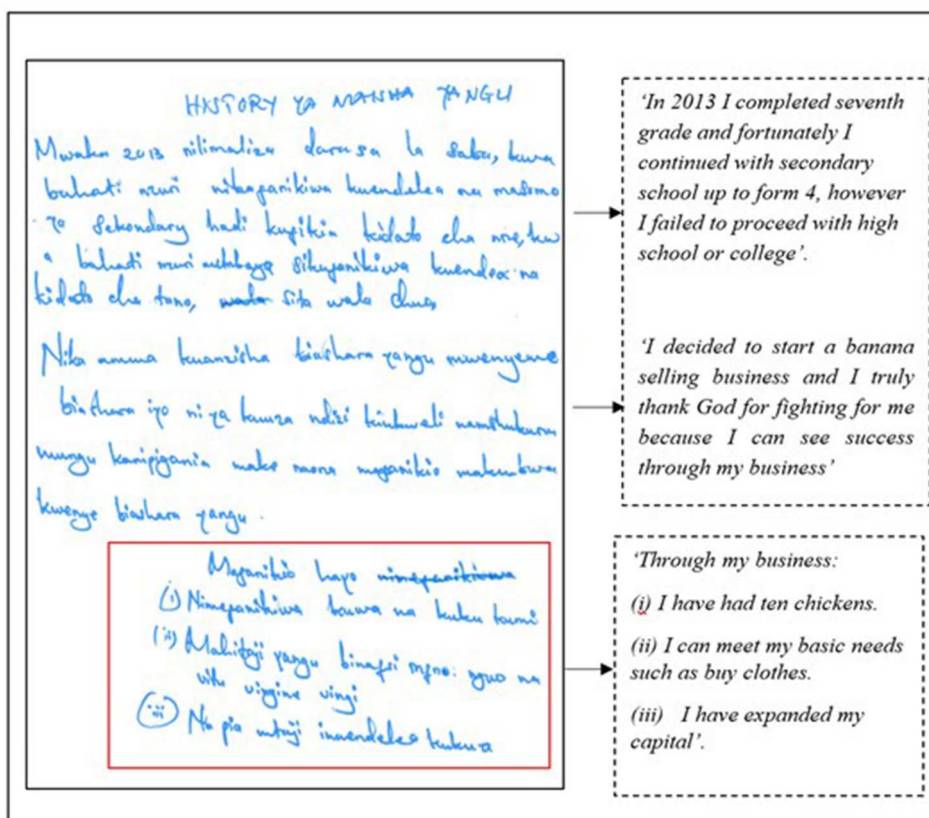 HISTORY YA MAISHA YANGU
Mwaka 2013 nilimaliza darasa la saba, kwa
bahati nzuri nikafanikiwa kuendelea na masomo
ya Sekondary hadi kufikia kidato cha nne, kw
a bahati nzuri sikufanikiwa kuendelea na
kidato cha tano, sita wala chuo,
Nika amua kuanzisha biashara yangu mwenyewe
biashara iyo ni ya kuuza ndizi kiukweli namshukuru
mungu kanipigania make naona mafanikio makubwa
kwenye biashara yangu.
Mafanikio hayo nimefanikiwa
(i) Nimefanikiwa kuwa na kuku kumi
(ii) Mahitaji yangu binafsi mfno: nguo na
vitu vingine vingi
(iii) Na pia mtaji inaendelea kukua
'In 2013 I completed seventh
grade and fortunately I
continued with secondary
school up to form 4, however
I failed to proceed with high
school or college'.
'I decided to start a banana
selling business and I truly
thank God for fighting for me
because I can see success
through my business'
'Through my business:
(i) I have had ten chickens.
(ii) I can meet my basic needs
such as buy clothes.
(iii) I have expanded my
capital'.